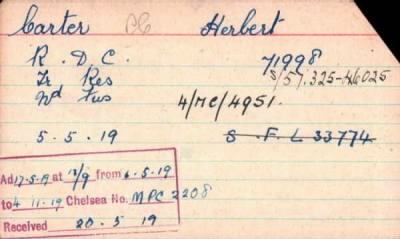 Carter Herbert
R.D.C. 71998
Tr Res S/57.325-46025
Wd Fus 4/MC/4951.
5.5.19 S.F.L 33774
Ad 17-5-19 at 13/9 from 6-5-19
to 4 11-19 Chelsea No. MPC 2208
Received 20-5 19